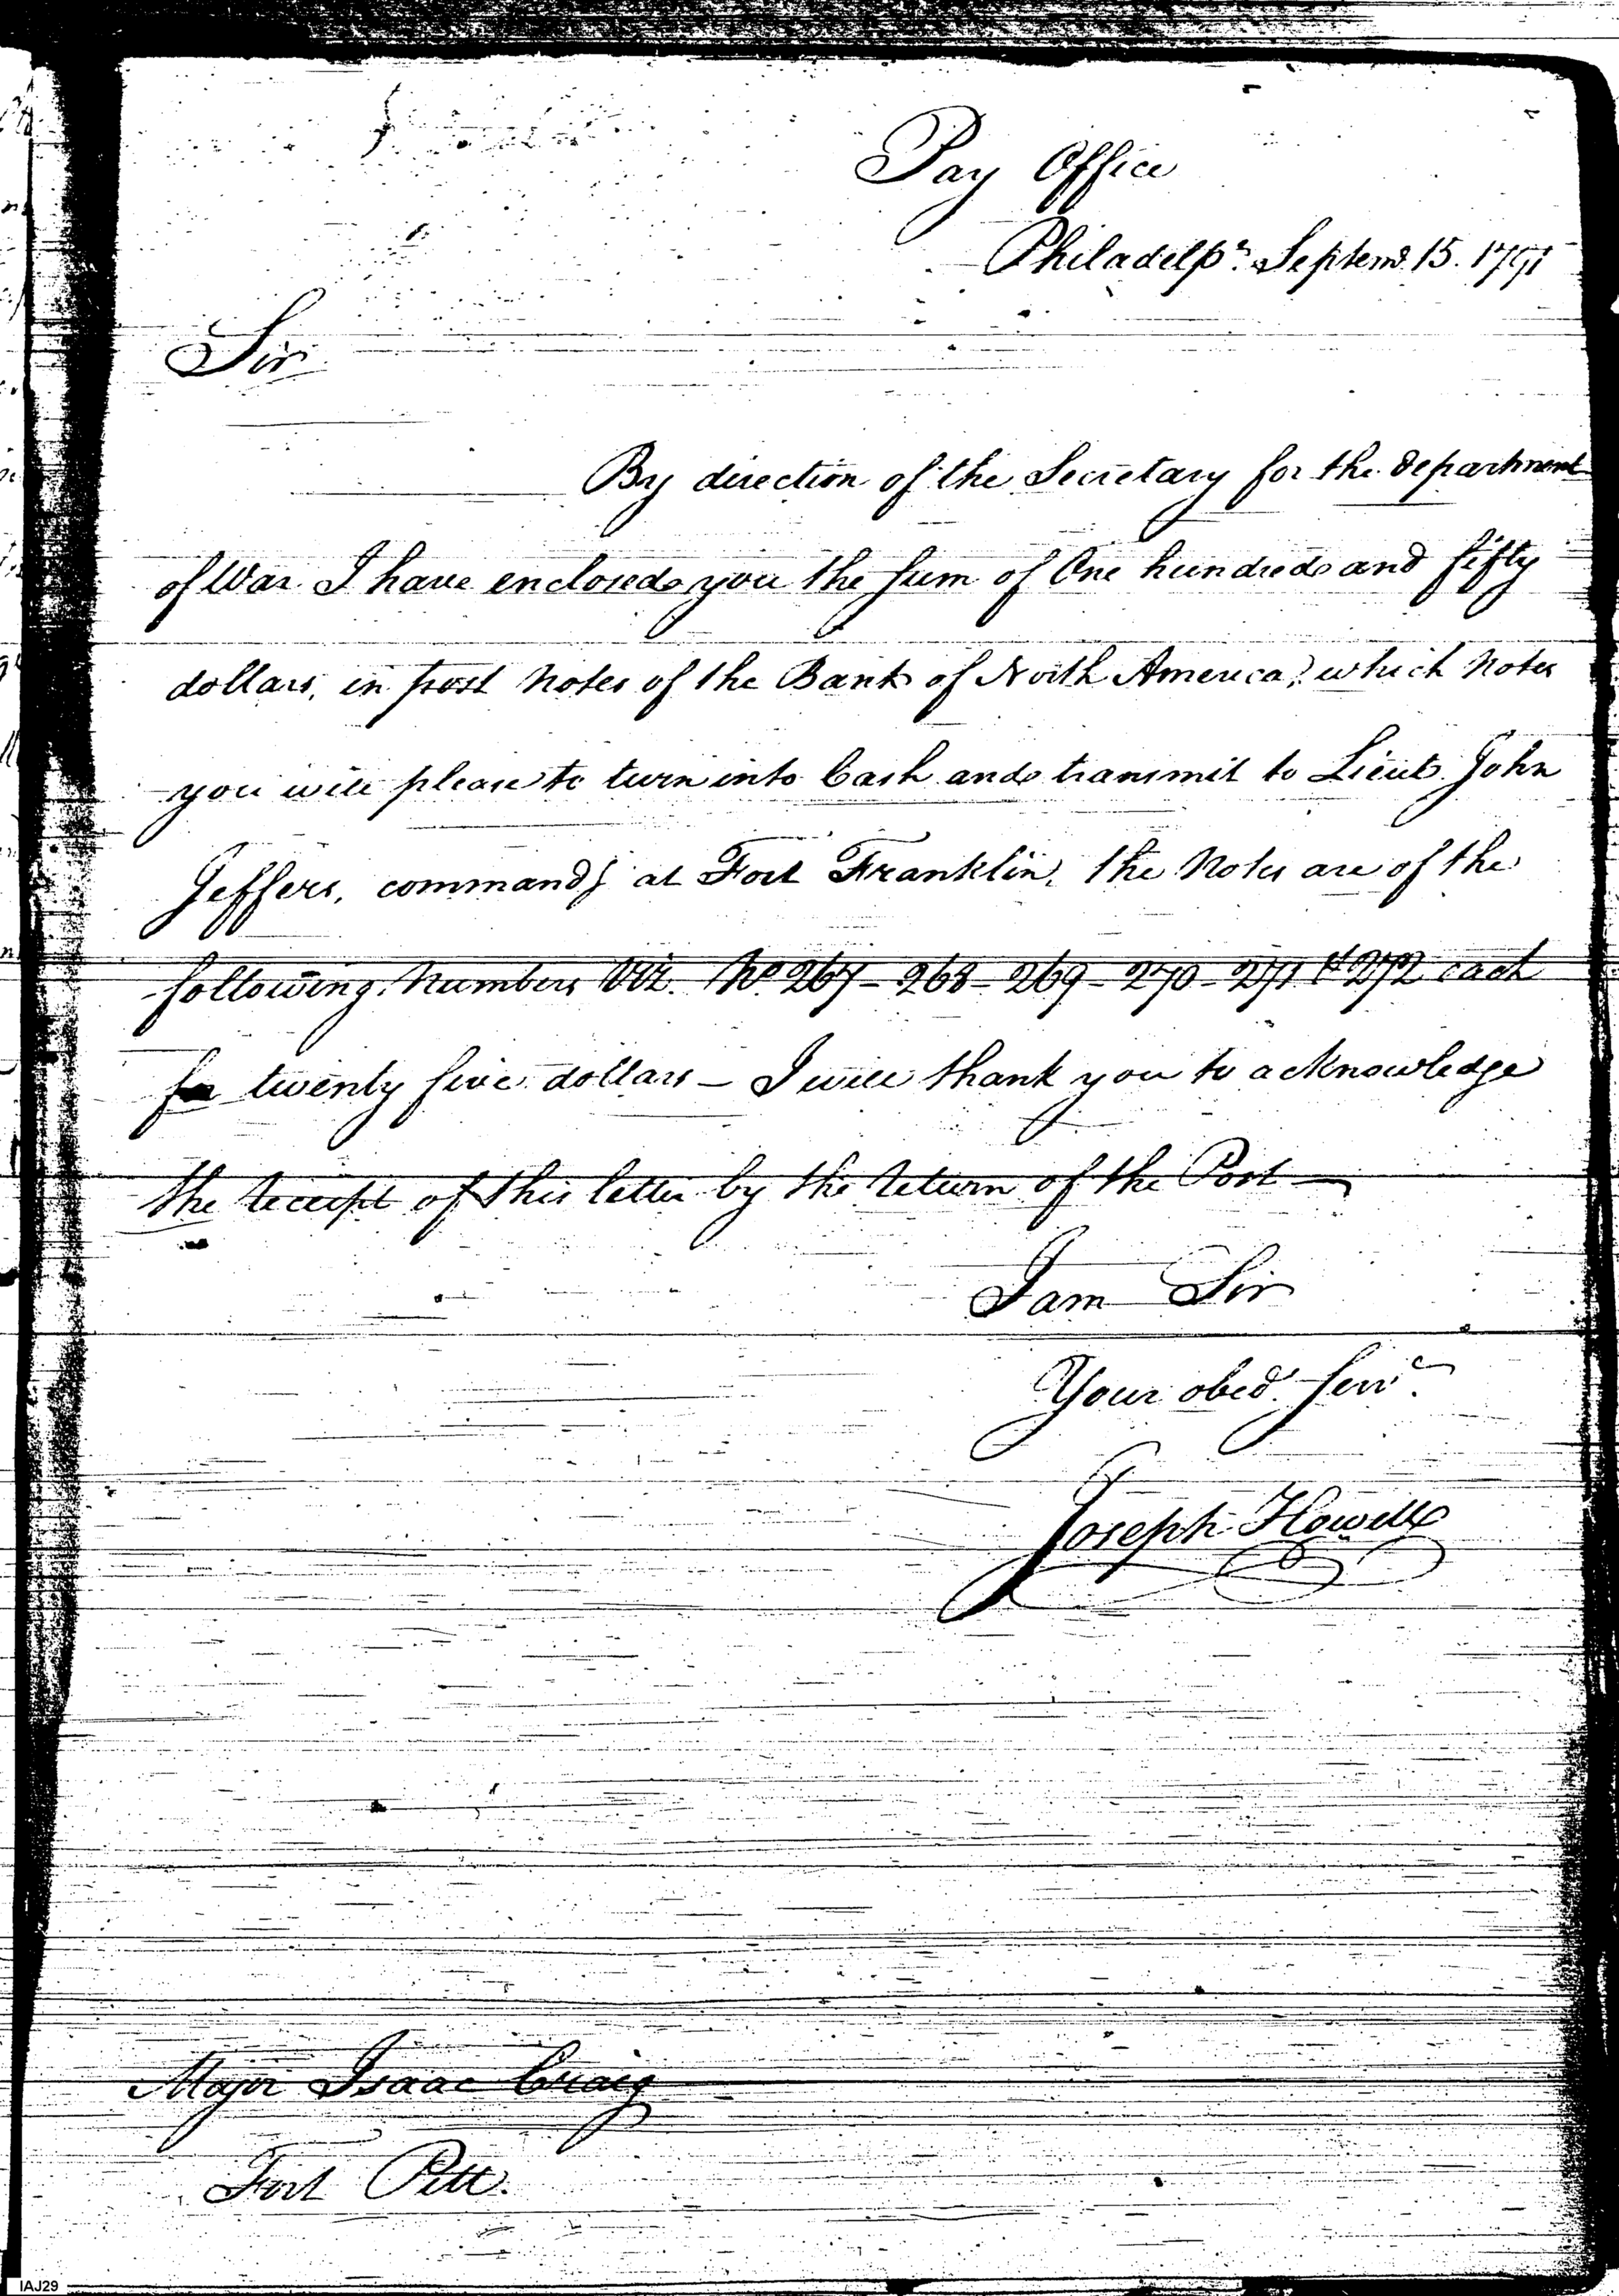 Pay Office
Philadelpa. Septemr. 15. 1791
Sir
By direction of the Secretary for the department
of War I have enclosed you the sum of One hundred and fifty
dollars, in post notes of the Bank of North America, which notes
you will please to turn into Cash and transmit to Lieut. John
Jeffers, commandg at Fort Franklin, the Notes are of the
following Numbers Viz. No. 267 - 268 - 269 - 270 - 271 & 272 each
for twenty five dollars - I will thank you to acknowledge
the receipt of this letter by the return of the Post —
I am Sir
Your obedt. servt.
Joseph Howell
Major Isaac Craig
Fort Pitt.
IAJ29